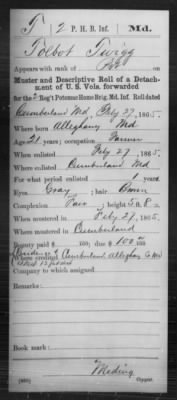 T 2 P. H. B. Inf. Md.
Tolbot Twigg
Appears with rank of Pvt
Muster and Descriptive Roll of a Detach-
ment of U. S. Vols. forwarded
for the 2 Reg't Potomac Home Brig. Md. Inf. Roll dated
Cumberland Md, Feby 27, 1865.
Where born Alleghany Md
Age 21 years; occupation Farmer
When enlisted Feby 27, 1865.
Where enlisted Cumberland Md.
For what period enlisted 1 years.
Eyes Gray; hair
Complexion Fair; height 5 ft. 8 in.
When mustered in Feby 27, 1865.
Where mustered in Cumberland
Bounty paid $ 100; due $ 100
Where credited Cumberland Alleghany Co Md
Residence
Company to which assigned
Remarks:
Book mark:
Copyist.